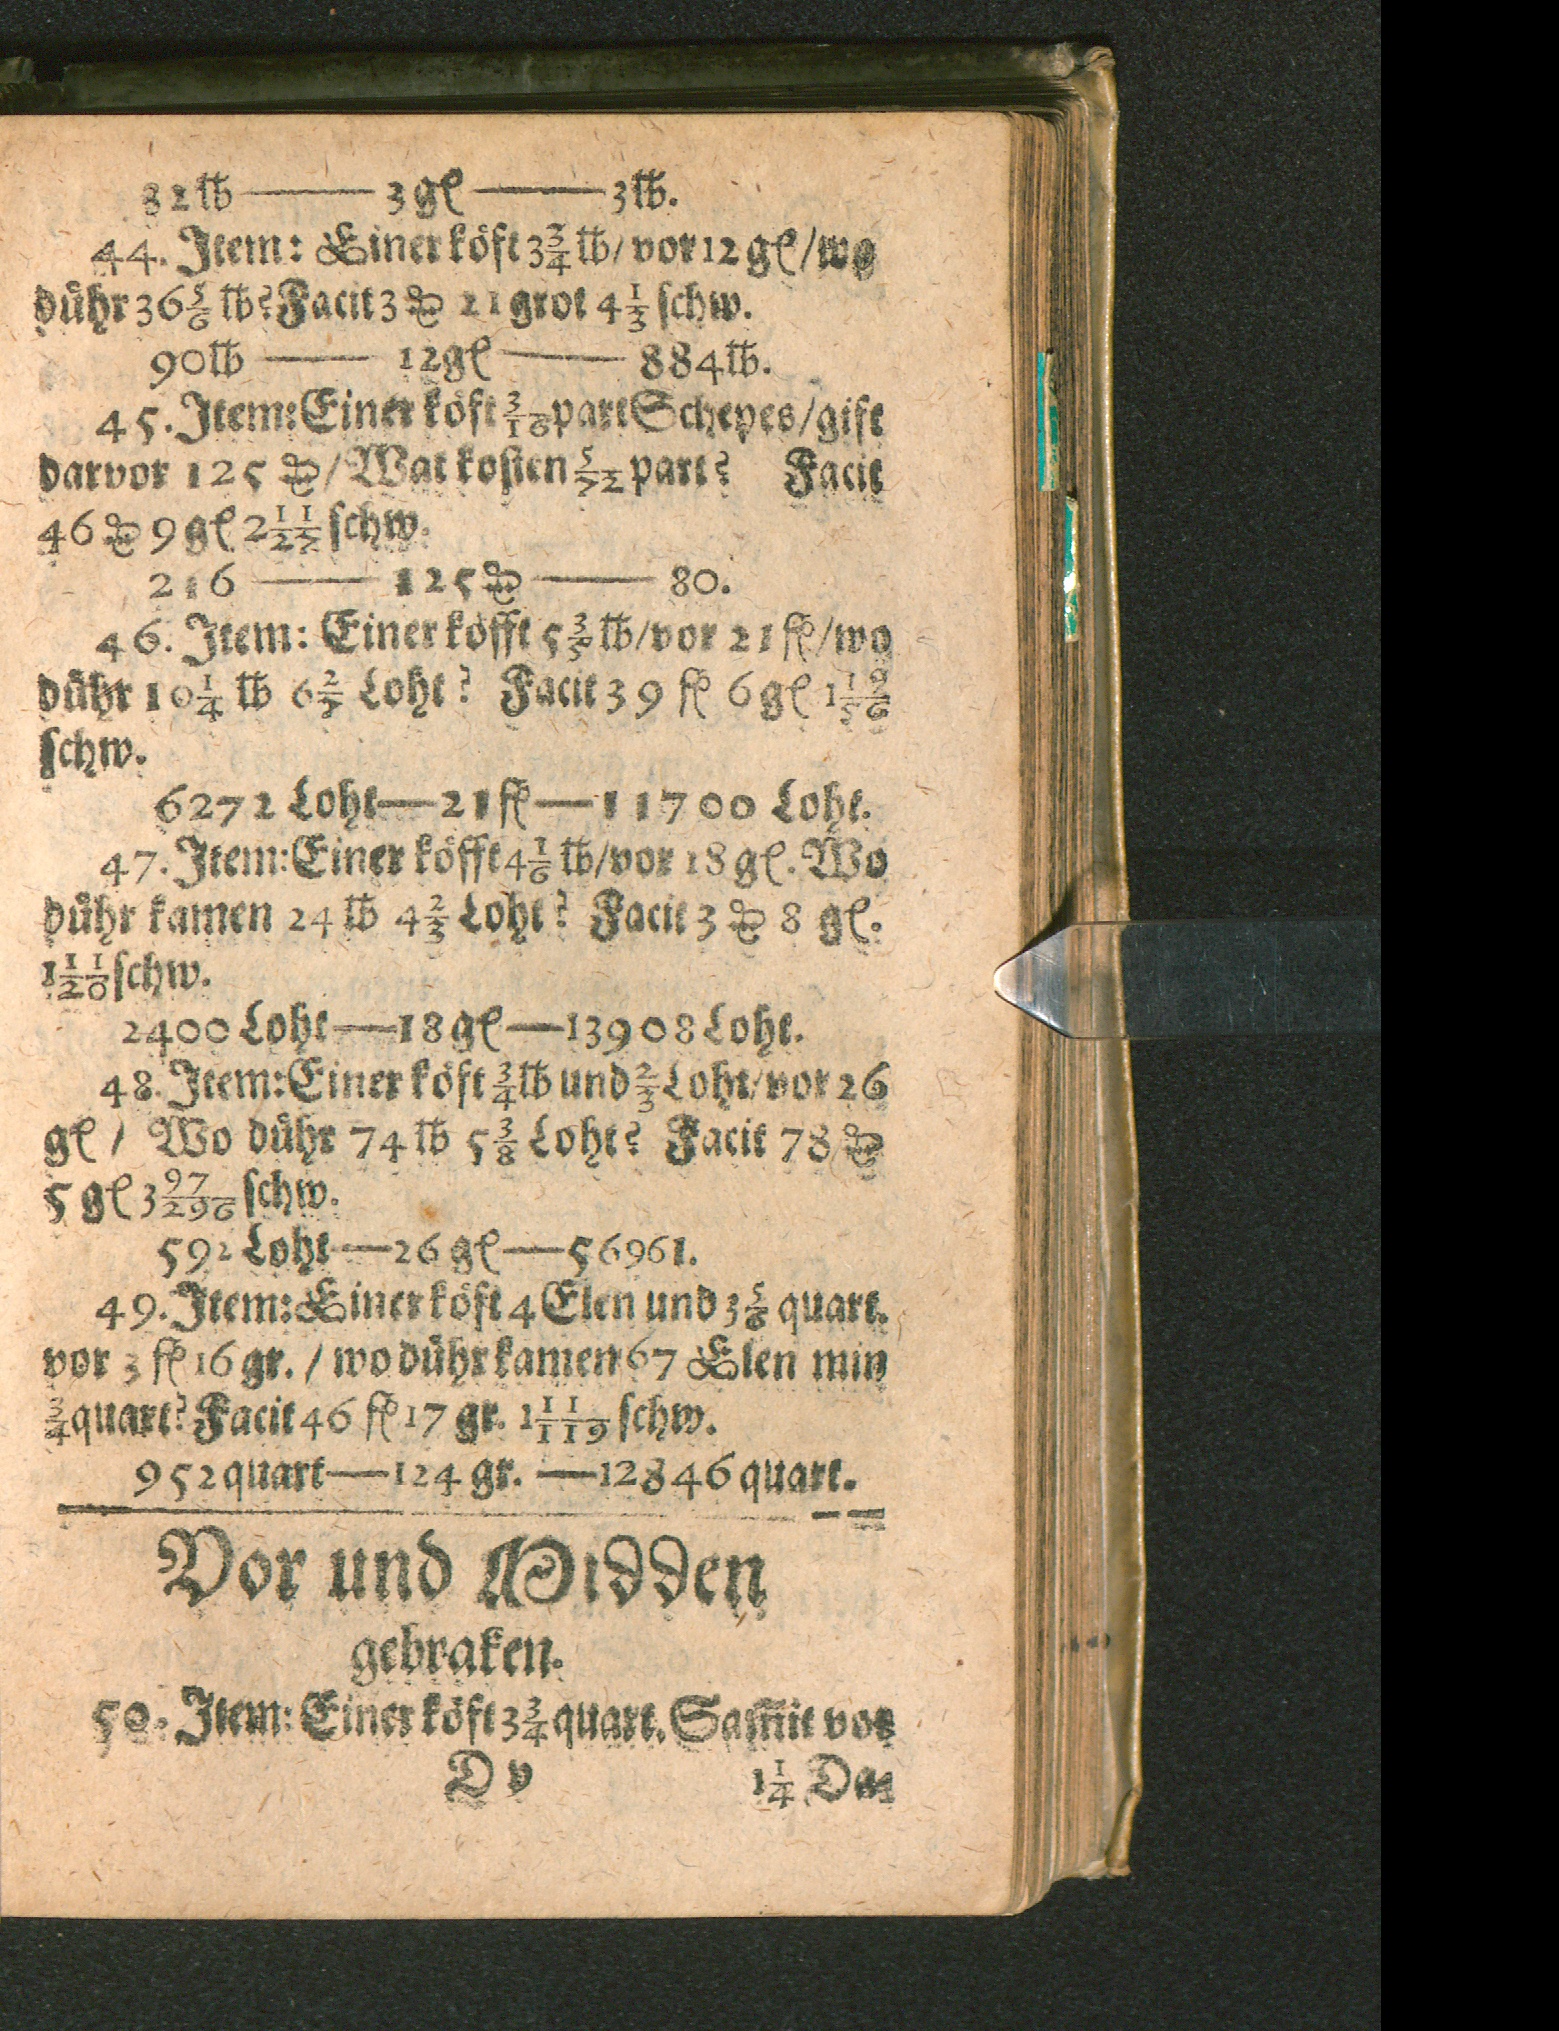 32 ℔ —— 3 gl —— 3 ℔.
44. Item: Einer köft 3 3/4 ℔/ vor 12 gl/ wo
dühr 36 5/6 ℔? Facit 3 ₰ 21 grot 4 1/3 schw.
90 ℔ —— 12 gl —— 884 ℔.
45. Item: Einer köft 3/16 part Schepes/ gift
darvor 125 ₰/ Wat kosten 5/72 part? Facit
46 ₰ 9 gl 2 11/27 schw.
216 —— 125 ₰ —— 80.
46. Item: Einer köfft 5 3/5 ℔/ vor 21 ß/ wo
dühr 10 1/4 ℔ 6 2/7 Loht? Facit 39 ß 6 gl 1 19/56
schw.
6272 Loht — 21 ß — 11700 Loht.
47. Item: Einer köfft 4 1/6 ℔/ vor 18 gl. Wo
dühr kamen 24 ℔ 4 2/3 Loht? Facit 3 ₰ 8 gl.
1 11/20 schw.
2400 Loht — 18 gl — 13908 Loht.
48. Item: Einer köft 3/4 ℔ und 2/3 Loht/ vor 26
gl/ Wo dühr 74 ℔ 5 3/8 Loht? Facit 78 ₰
5 gl 3 97/296 schw.
592 Loht — 26 gl — 56961.
49. Item: Einer köft 4 Elen und 3 5/6 quart.
vor 3 ß 16 gr. / wo dühr kamen 67 Elen min
3/4 quart? Facit 46 ß 17 gr. 1 11/119 schw.
952 quart — 124 gr. — 12846 quart.
Vor und Midden
gebraken.
50. Item: Einer köft 3 3/4 quart. Sam̃it vor
D v 1 1/4 Da⸗